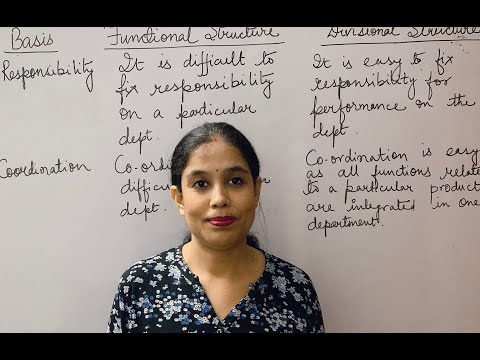 Basis
Functional Structure
Divisional Structure
Responsibility
It is difficult to
fix responsibility
on a particular
dept.
It is easy to fix
responsibility for
performance on the
dept.
Coordination
dept.
Co-ordination is easy
as all functions related
to a particular product
are integrated in one
department.